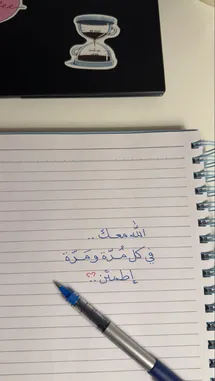 الله معك..
في كل مُرّة و مَرّة
إطمئن..؟؟